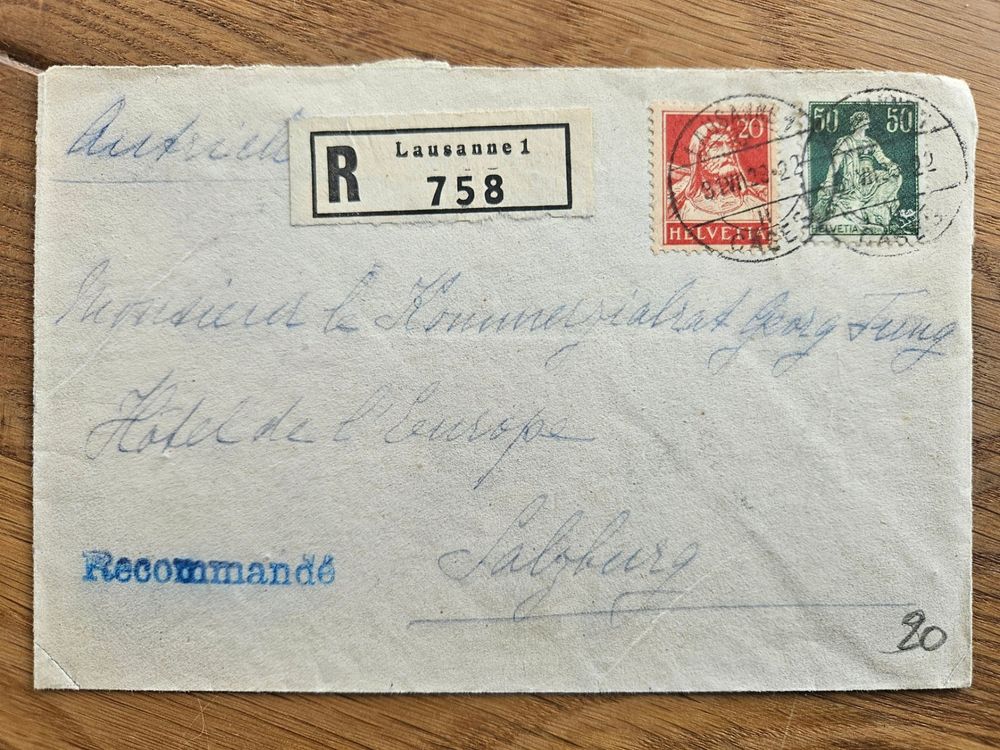 Autriche
R
Lausanne 1
758
20
HELVETIA
50 50
HELVETIA
Monsieur le Kommerzialrat Georg Jung
Hôtel de l'Europe
Salzburg
Recommandé
20